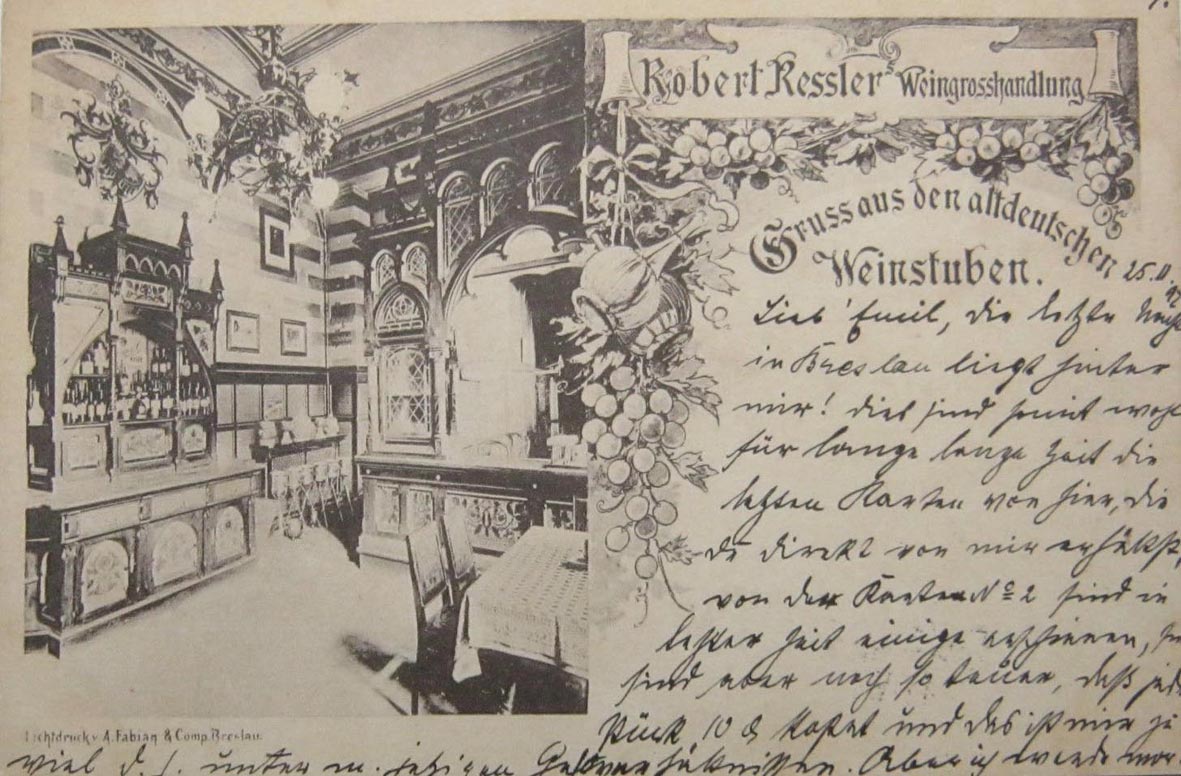 Robert Kessler's Weingrosshandlung
Gruss aus den altdeutschen
Weinstuben.
25.II.
Lieb' Emil, die letzte Nacht
in Breslau liegt hinter
mir! dies sind somit wohl
für lange lange Zeit die
letzten Karten von hier, die
du direkt von mir erhältst,
von den Karten No 2 sind in
letzter Zeit einige erschienen,
sind aber noch so teuer, daß jede
Stück 10 kostet und das ist mir zu
viel d. h. unter m. jetzigen Geldverhältnissen. Aber ich werde
Lichtdruck v. A. Fabian & Comp. Breslau.